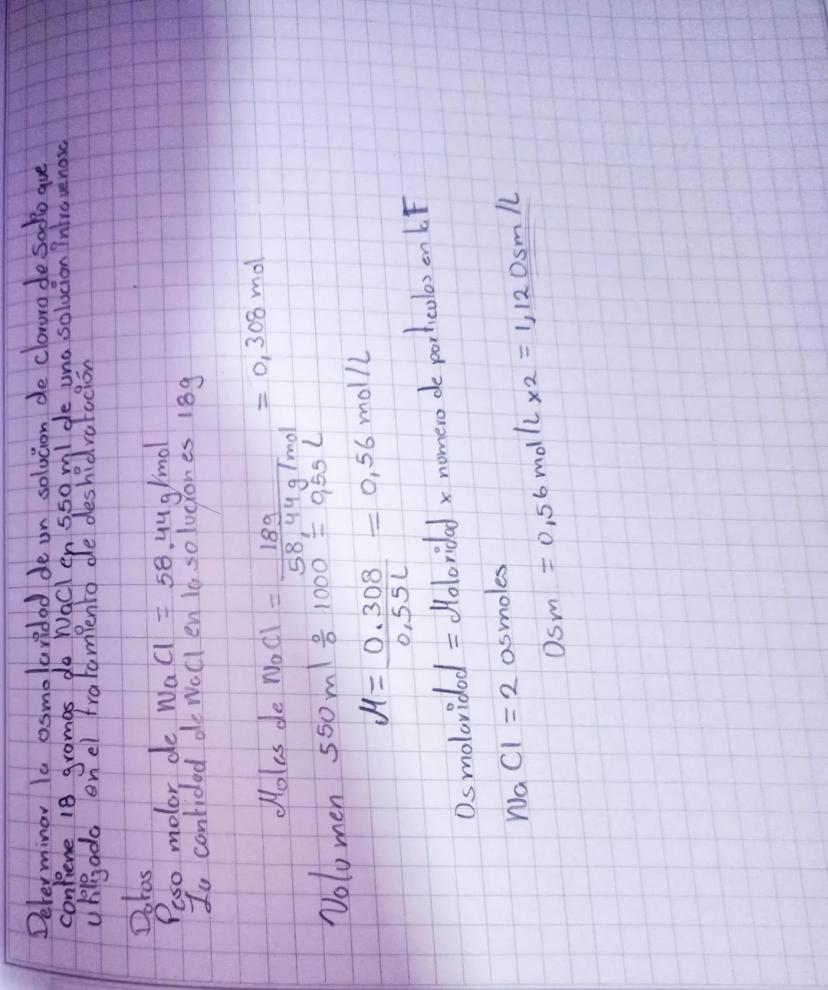 Determinar la osmolaridad de un solución de cloruro de sodio que
contiene 18 gramos de NaCl en 550 ml de una solución intravenosa
utilizada en el tratamiento de deshidratación
Datos
Peso molar de NaCl = 58.44g/mol
La cantidad de NaCl en la soluciones 18g
Moles de NaCl = 18g / 58,44g/mol = 0,308 mol
Volumen 550 ml ÷ 1000 = 0,55 L
M = 0.308 / 0,55L = 0,56 mol/L
Osmolaridad = Molaridad x numero de particulas en la F
NaCl = 2 osmoles
Osm = 0,56 mol/L x2 = 1,12 Osm/L